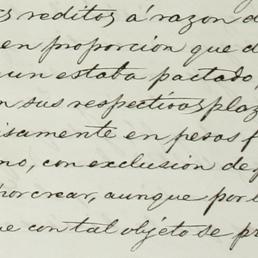 reditos á razon d
en proporcion que d
un estaba pactado,
sus respectivos plaz
isamente en pesos f
no, con exclusion de
por crear, aunque por
con tal objeto se pr